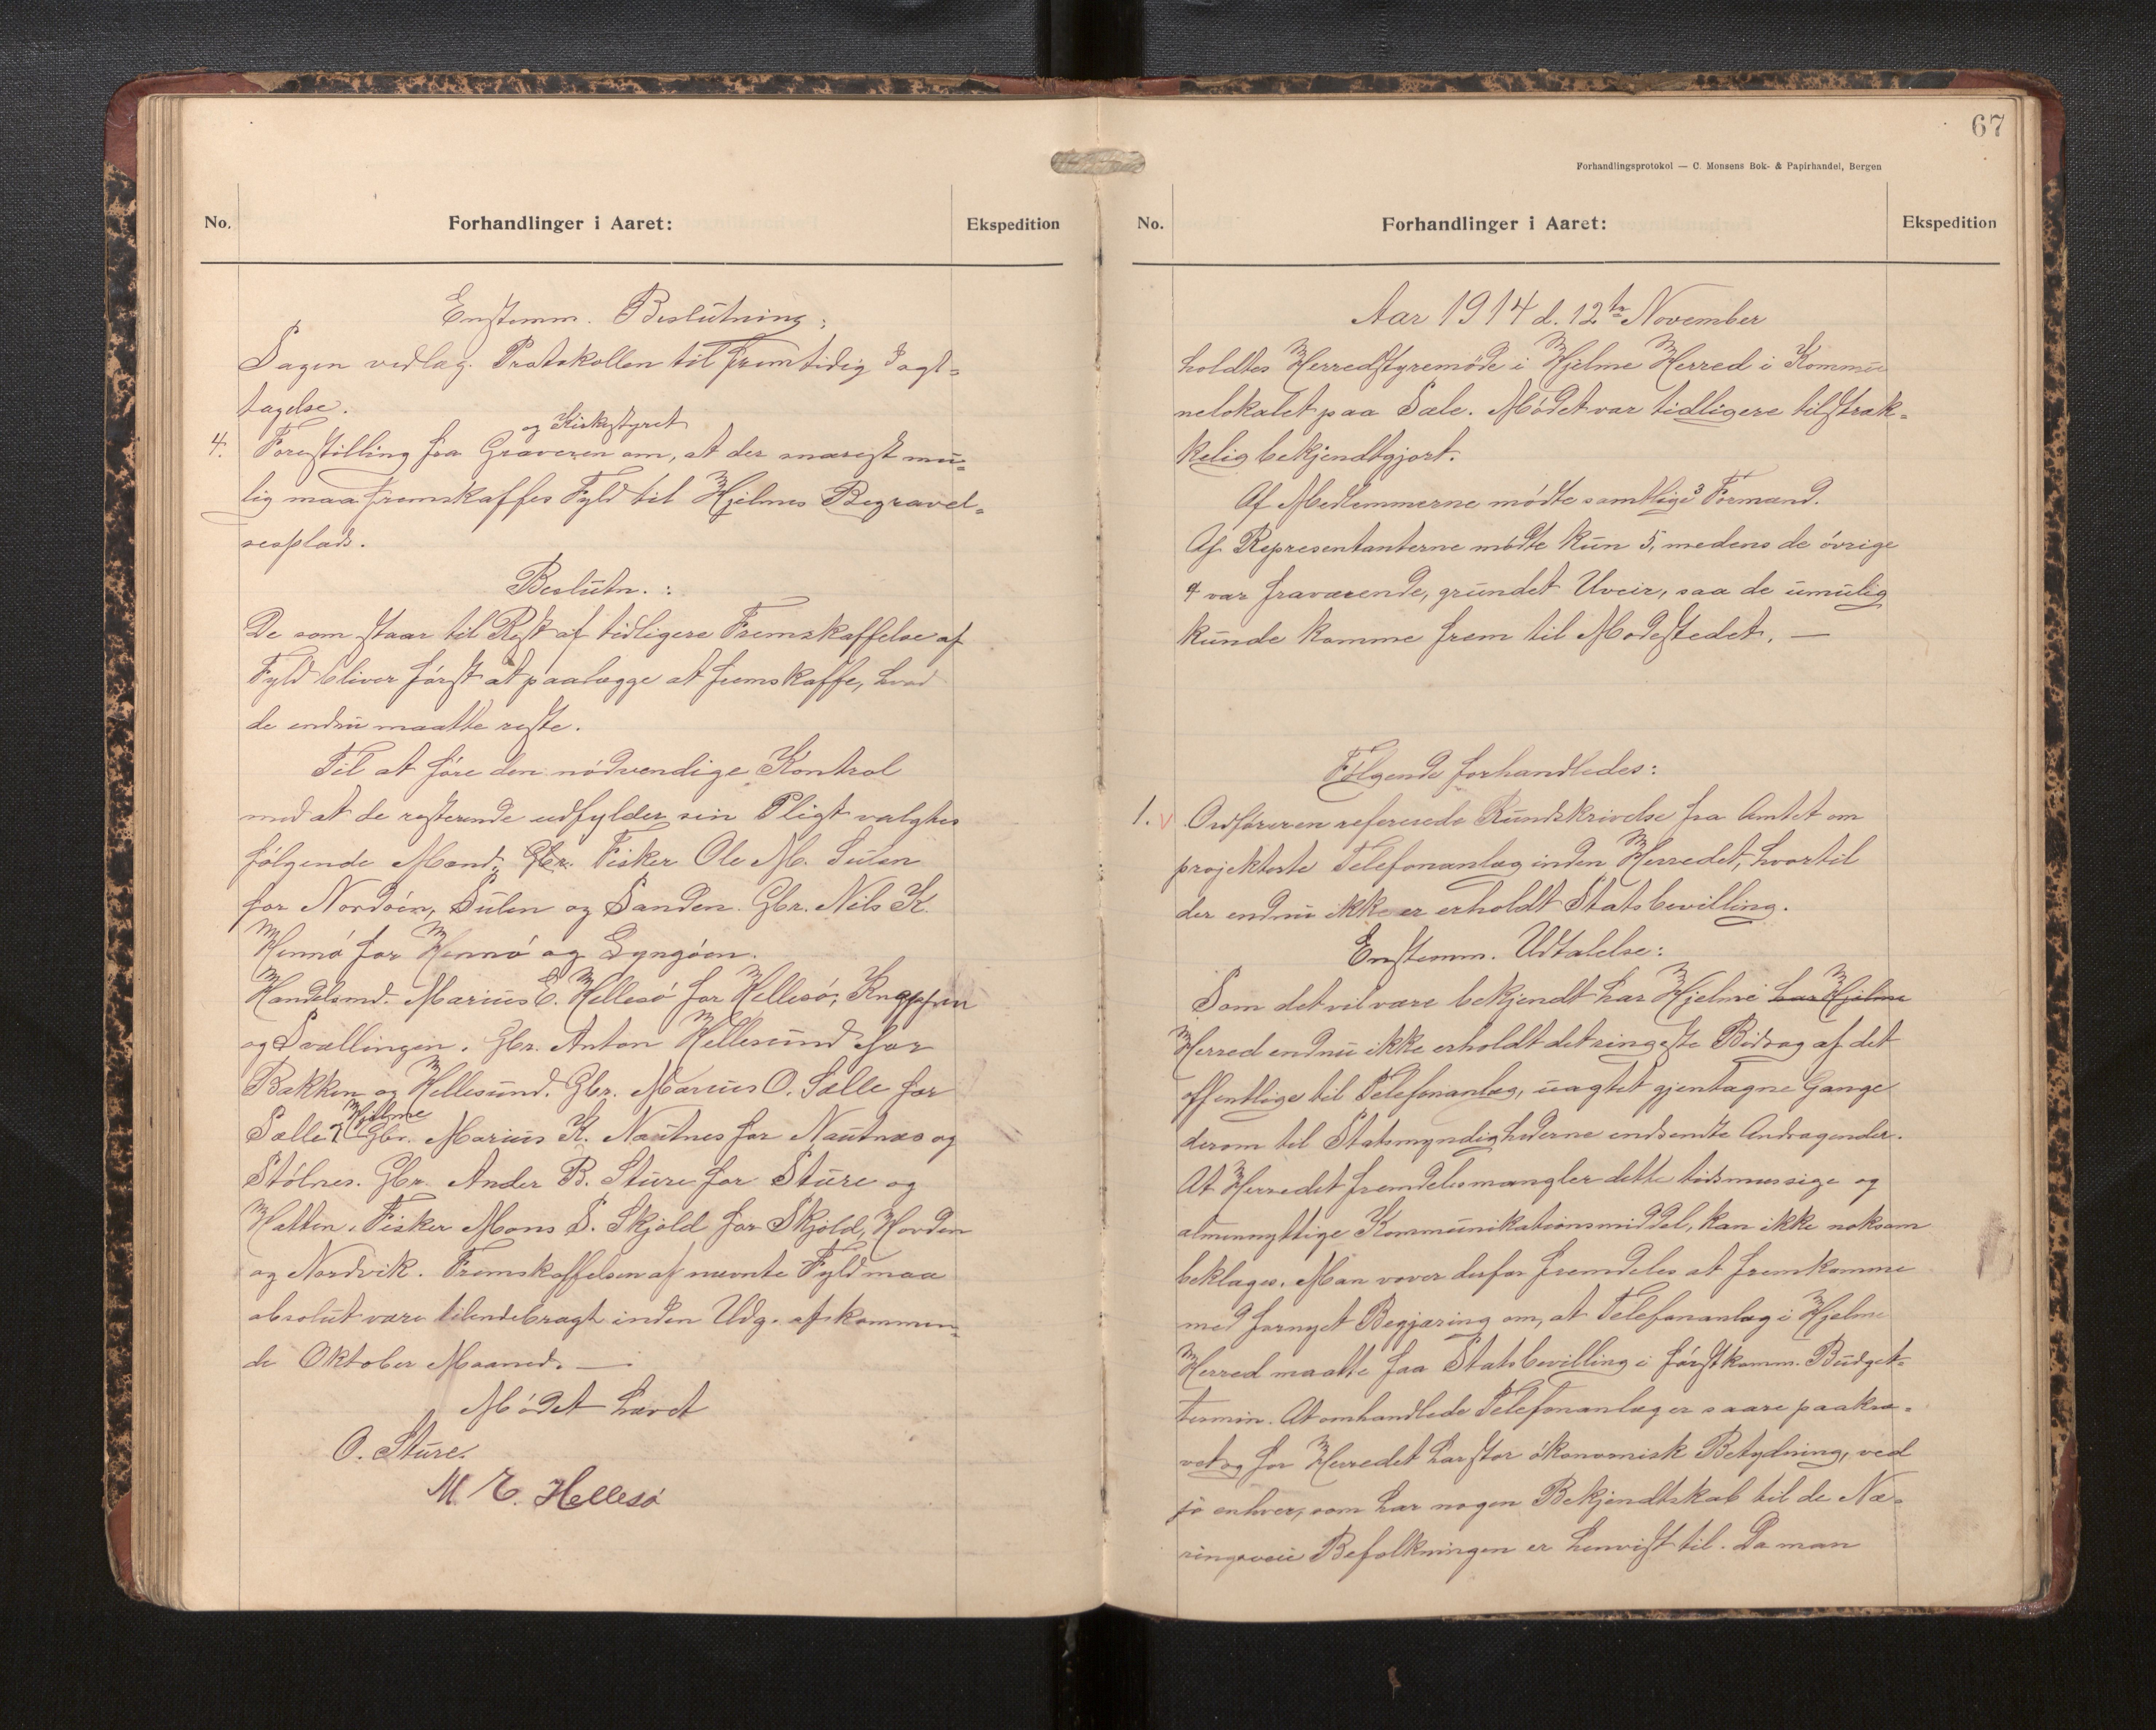 No.
Forhandlinger i Aaret:
Ekspedition
Enstemm. Beslutning:
Sagen vedlæg. Protokollen til fremtidig Iagt-
tagelse.
og Kirkestyret
4. Forestilling fra Graveren om, at der snarest mu-
lig maa fremskaffes Fyld til Hjelmes Begravel-
sesplads.
Beslutn.:
De som staar til Rest af tidligere Fremskaffelse af
Fyld bliver først at paalægge at fremskaffe, hvad
de endnu maatte reste.
Til at føre den nødvendige Kontrol
med at de resterende udfylder sin Pligt valgtes
følgende Mænd: Gbr. Fisker Ole M. Sulen
for Nordøen, Sulen og Sanden. Gbr. Nils K.
Hennø for Hennø og Lyngøen.
Handelsmd. Marius E. Hellesø for Hellesø, Knappen
og Svællingen. Gbr. Anton Hellesund for
Bakken og Hellesund. Gbr. Marius O. Sælle for
Hjelme
Sælle & Gbr. Marius K. Nautnes for Nautnes og
Stølnes. Gbr. Ander B. Sture for Sture og
Hatten. Fisker Mons S. Skjold for Skjold, Horden
og Nordvik. Fremskaffelsen af nævnte Fyld maa
absolut være tilendebragt inden Udg. af kommen-
de Oktober Maaned. —
Mødet hævet
O. Sture.
M. E. Hellesø
67
Forhandlingsprotokol — C. Monsens Bok- & Papirhandel, Bergen
No.
Forhandlinger i Aaret:
Ekspedition
Aar 1914 d. 12te November
holdtes Herredstyremøde i Hjelme Herred i Kommu
nelokalet paa Sæle. Mødet var tidligere tilstræk-
kelig bekjendtgjort.
Af Medlemmerne mødte samtlige 3 Formænd.
Af Representanterne mødte kun 5, medens de øvrige
4 var fraværende, grundet Uveir, saa de umulig
kunde komme frem til Mødestedet. —
Følgende forhandledes:
1. Ordføreren refererede Rundskrivelse fra Amtet om
projekterte Telefonanlæg inden Herredet, hvortil
der endnu ikke er erholdt Statsbevilling.
Enstemm. Udtalelse:
Som det vil være bekjendt har Hjelme har Hjelme
Herred endnu ikke erholdt det ringeste Bidrag af det
offentlige til Telefonanlæg, uagtet gjentagne Gange
derom til Statsmyndighederne endsendte Andragender.
At Herredet fremdeles mangler dette tidsmæssige og
almennyttige Kommunikationsmiddel, kan ikke noksom
beklages. Man vover derfor fremdeles at fremkomme
med fornyet Begjæring om, at Telefonanlæg i Hjelme
Herred maatte faa Statsbevilling i førstkomm. Budget-
termin. At omhandlede Telefonanlæg er saare paakræ-
vet og for Herredet har stor økonomisk Betydning, ved
jo enhver, som har nogen Bekjendtskab til de Næ-
ringsveie Befolkningen er henvist til. Da man